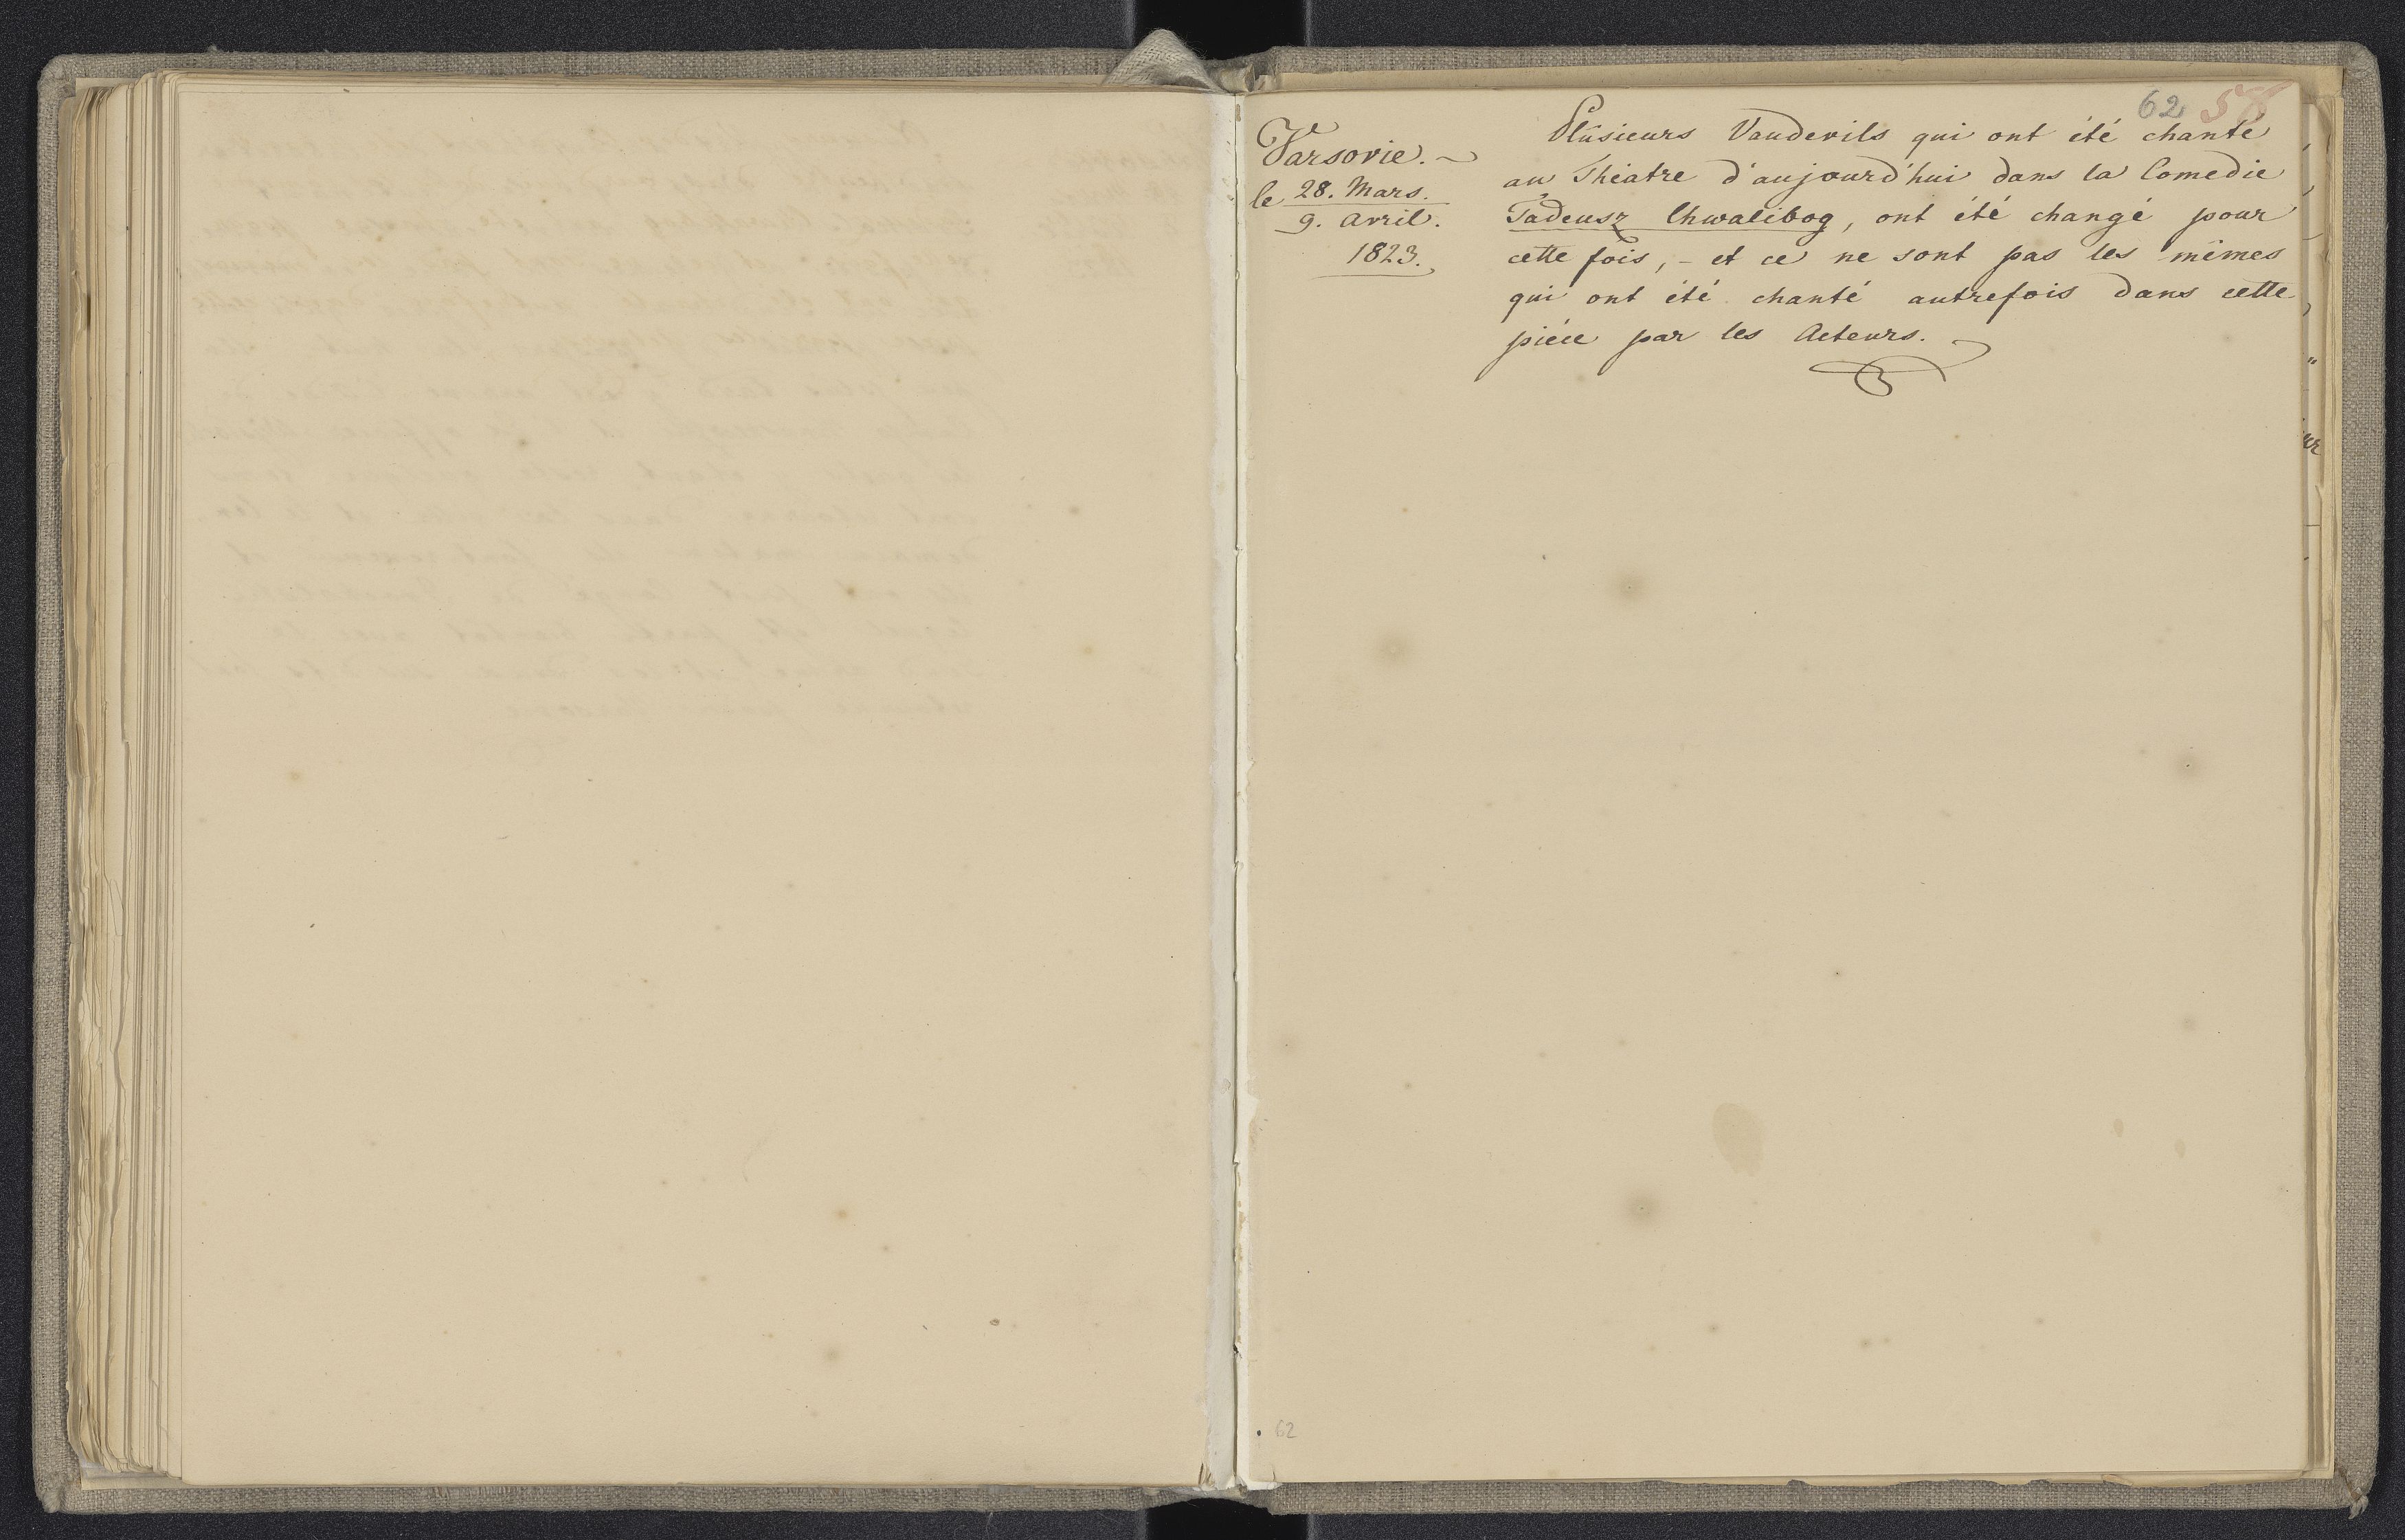 62 58
Varsovie.
le 28. Mars.
9. Avril.
1823.
Plusieurs Vaudevils qui ont été chanté
au Théatre d'aujourd'hui dans la Comedie
Tadeusz Chwalibog, ont été changé pour
cette fois, - et ce ne sont pas les mêmes
qui ont été chanté autrefois dans cette
piéce par les Acteurs.
62